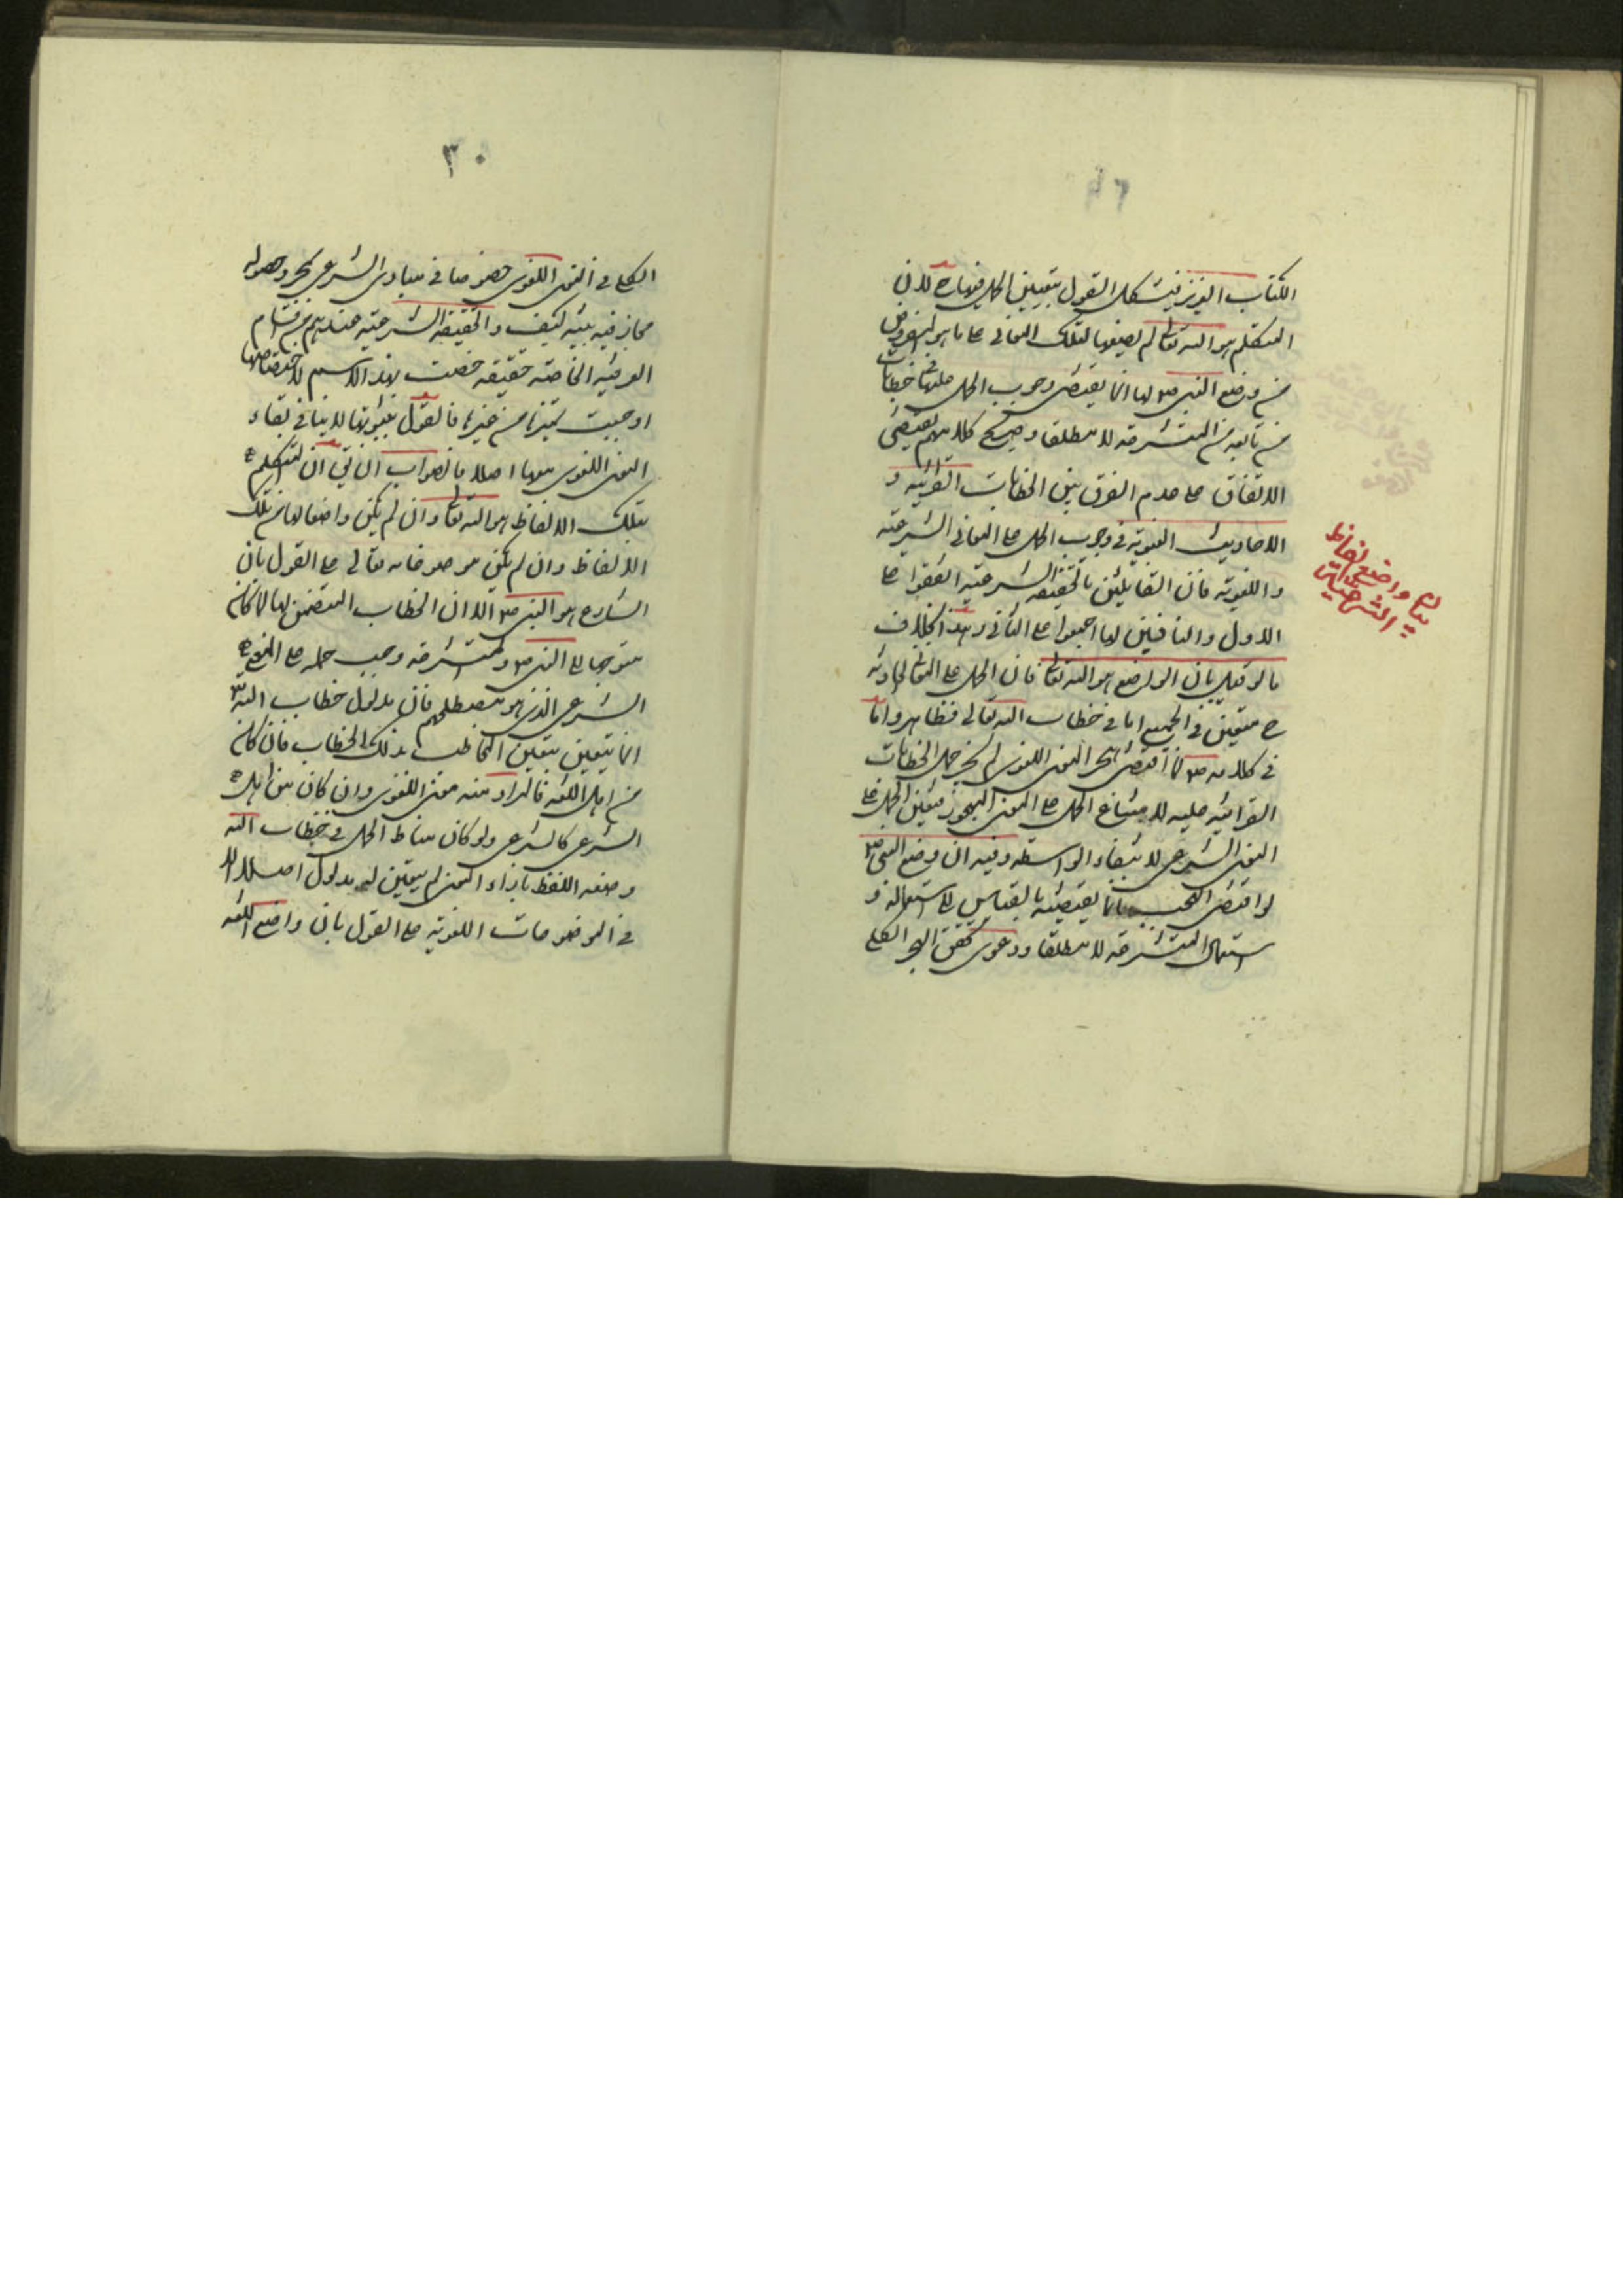 الكتاب العزيز فيشكل القول بتعيين الحمل فيها ح لان
المتكلم هو الله تعالى لم يضعها لتلك المعانى على ما هو المفروض
من وضع النبى ص لها انما يقتضى وجوب الحمل عليها فى خطابات
من تابعه من المتشرعة لا مطلقا وصريح كلامهم يقتضى
الاتفاق على عدم الفرق بين الخطابات القرانيه و
الاحاديث النبويه فى وجوب الحمل على المعانى الشرعيه
واللغويه فان القايلين بالحقيقه الشرعيه اتفقوا على
الاول والنافين لها اجمعوا على الثانى وهذا بخلاف
ما لو قيل بان الواضع هو الله تعالى فان الحمل على المعانى الحادثه
ح متعين فى الجميع اما فى خطاب الله تعالى فظاهر واما
فى كلامه ص لما اقتضى هجر المعنى اللغوى لم يجز حمل الخطابات
القرانيه عليه لامتناع الحمل على المعنى المهجور فتعين الحمل على
المعنى الشرعى لانتفاء الواسطه وفيه ان وضع النبى ص
لو اقتضى الهجر فانما يقتضيه بالقياس الى استعماله و
استعمال المتشرعه لا مطلقا ودعوى تحقق الهجر الكلى
بيان واضع الفاظ
الشرعيات
٣٠
الكلى فى المعنى اللغوى خصوصا فى مبادى الشرع بمجرد حصول
مجاز فيه بينه كيف والحقيقه الشرعيه عندهم من اقسام
العرفيه الخاصه حقيقه خصت بهذا الاسم لاختصاصها
اوجبت تميزها من غيرها فالقول بثبوتها لا ينافى بقاء
المعنى اللغوى معها اصلا فالصواب ان يق ان المتكلم
بتلك الالفاظ هو الله تعالى وان لم يكن واضعا لها من تلك
الالفاظ وان لم يكن موضوعا له تعالى على القول بان
الشارع هو النبى ص الا ان الخطاب المتضمن لها لما كان
متوجها الى النبى ص والمتشرعه وجب حمله على المعنى
الشرعى الذى هو مصطلحهم فان مدلول خطاب الله
انما يتعين بتعين المخاطب بذلك الخطاب فان كان
من اهل اللغه فالمراد منه معنى اللغوى وان كان من اهل
الشرع كالشرعى ولو كان مناط الحمل فى خطاب الله
وضعه اللفظ بازاء المعنى لم يتعين له مدلول اصلا لا
فى الموضوعات اللغويه على القول بان واضع اللغه